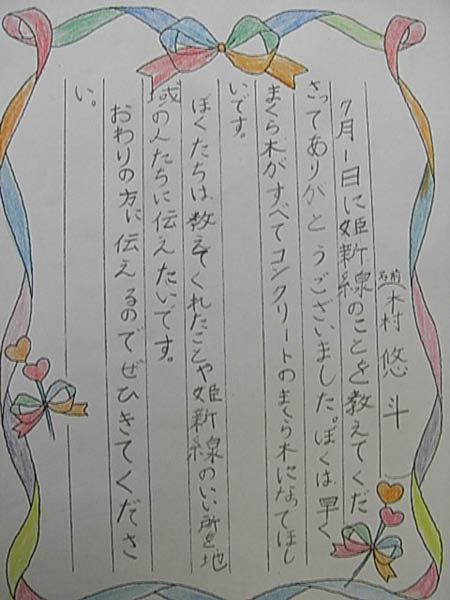 名前(木村 悠斗
7月1日に姫新線のことを教えてくだ
さってありがとうございました。ぼくは早く
まくら木がすべてコンクリートのまくら木になってほし
いです。
ぼくたちは教えてくれたことや姫新線のいい所を地
域の人たちに伝えたいです。
おわりの方に伝えるのでぜひきてくださ
い。